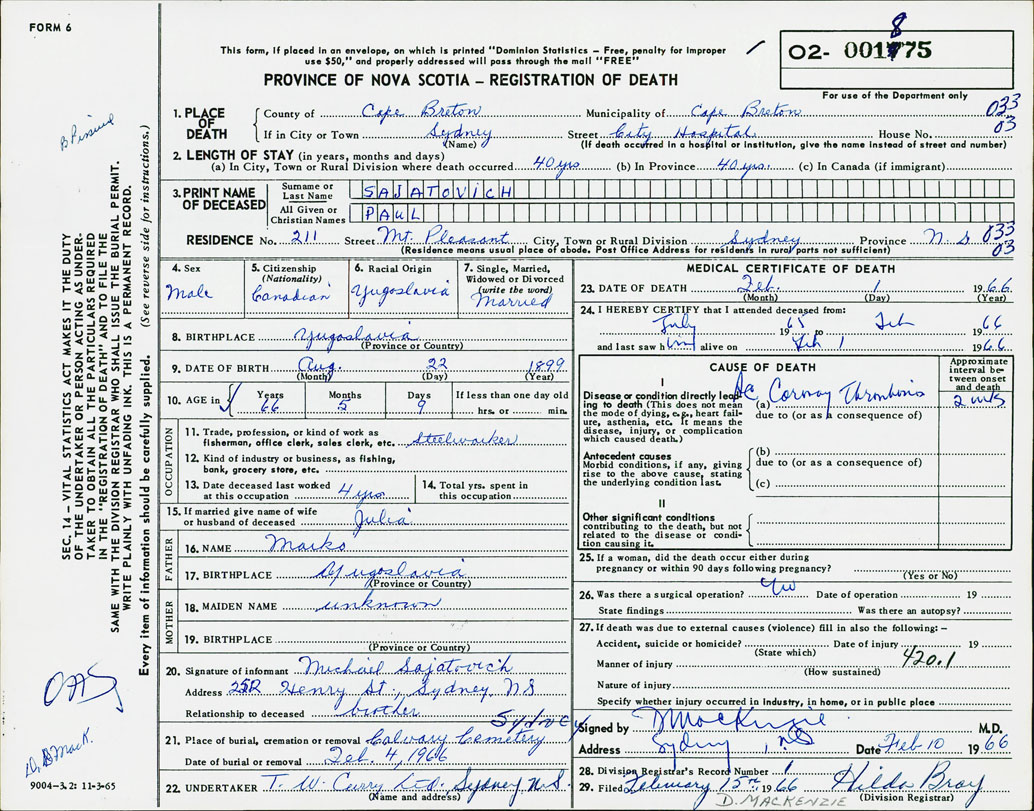 FORM 6
This form, if placed in an envelope, on which is printed "Dominion Statistics – Free, penalty for improper
use $50," and properly addressed will pass through the mail "FREE"
PROVINCE OF NOVA SCOTIA – REGISTRATION OF DEATH
O2- 001875
For use of the Department only
1. PLACE OF DEATH County of Cape Breton Municipality of Cape Breton 033
If in City or Town Sydney Street City Hospital House No. 03
(Name) (If death occurred in a hospital or institution, give the name instead of street and number)
2. LENGTH OF STAY (in years, months and days)
(a) In City, Town or Rural Division where death occurred 40 yrs (b) In Province 40 yrs. (c) In Canada (if immigrant)
3. PRINT NAME OF DECEASED Surname or Last Name SAJATOVICH
All Given or Christian Names PAUL
RESIDENCE No. 211 Street Mt. Pleasant City, Town or Rural Division Sydney Province N. S 033
(Residence means usual place of abode. Post Office Address for residents in rural parts not sufficient) 03
4. Sex Male
5. Citizenship (Nationality) Canadian
6. Racial Origin Yugoslavia
7. Single, Married, Widowed or Divorced (write the word) Married
8. BIRTHPLACE Yugoslavia
(Province or Country)
9. DATE OF BIRTH Aug. 22 1899
(Month) (Day) (Year)
10. AGE in Years 66 Months 5 Days 9 If less than one day old hrs. or min.
OCCUPATION
11. Trade, profession, or kind of work as
fisherman, office clerk, sales clerk, etc. Steelworker
12. Kind of industry or business, as fishing,
bank, grocery store, etc.
13. Date deceased last worked
at this occupation 4 yrs.
14. Total yrs. spent in
this occupation
15. If married give name of wife
or husband of deceased Julia
FATHER
16. NAME Marko
17. BIRTHPLACE Yugoslavia
(Province or Country)
MOTHER
18. MAIDEN NAME unknown
19. BIRTHPLACE
(Province or Country)
20. Signature of informant Michael Sajatovich
Address 252 Henry St., Sydney, N S
Relationship to deceased brother
21. Place of burial, cremation or removal Calvary Cemetery Sydney
Date of burial or removal Feb. 4, 1966
22. UNDERTAKER T. W. Curry Ltd. Sydney N. S.
(Name and address)
MEDICAL CERTIFICATE OF DEATH
23. DATE OF DEATH Feb. 1 1966
(Month) (Day) (Year)
24. I HEREBY CERTIFY that I attended deceased from:
July 1965 to Feb 1966
and last saw him alive on Feb 1 1966
CAUSE OF DEATH
Approximate interval between onset and death
I
Disease or condition directly leading to death (This does not mean the mode of dying, e.g., heart failure, asthenia, etc. It means the disease, injury, or complication which caused death.)
(a) Ac Cornay Thrombosis
due to (or as a consequence of)
Antecedent causes
Morbid conditions, if any, giving rise to the above cause, stating the underlying condition last.
(b)
due to (or as a consequence of)
(c)
II
Other significant conditions
contributing to the death, but not
related to the disease or condi-
tion causing it.
25. If a woman, did the death occur either during
pregnancy or within 90 days following pregnancy?
(Yes or No)
26. Was there a surgical operation? Date of operation 19
State findings Was there an autopsy?
27. If death was due to external causes (violence) fill in also the following: –
Accident, suicide or homicide? Date of injury 19
(State which)
Manner of injury 420.1
(How sustained)
Nature of injury
Specify whether injury occurred in industry, in home, or in public place
Signed by D MacKenzie M.D.
Address Sydney, N S Date Feb 10 1966
28. Division Registrar's Record Number
29. Filed February 15th 1966 Hilda Bray
D. MACKENZIE (Division Registrar)
SEC. 14 – VITAL STATISTICS ACT MAKES IT THE DUTY
OF THE UNDERTAKER OR PERSON ACTING AS UNDER-
TAKER TO OBTAIN ALL THE PARTICULARS REQUIRED
IN THE "REGISTRATION OF DEATH" AND TO FILE THE
SAME WITH THE DIVISION REGISTRAR WHO SHALL ISSUE THE BURIAL PERMIT.
WRITE PLAINLY WITH UNFADING INK. THIS IS A PERMANENT RECORD.
Every item of information should be carefully supplied. (See reverse side for instructions.)
OAS
D. B MacK.
9004–3.2: 11-3-65